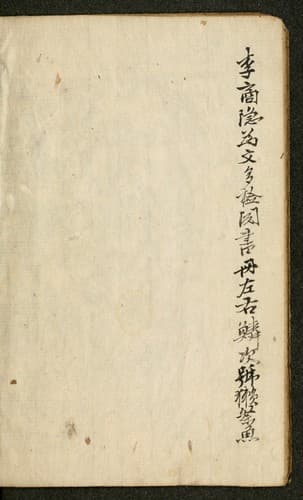 李商隐為文多檢閱書冊左右鱗次號獺祭魚